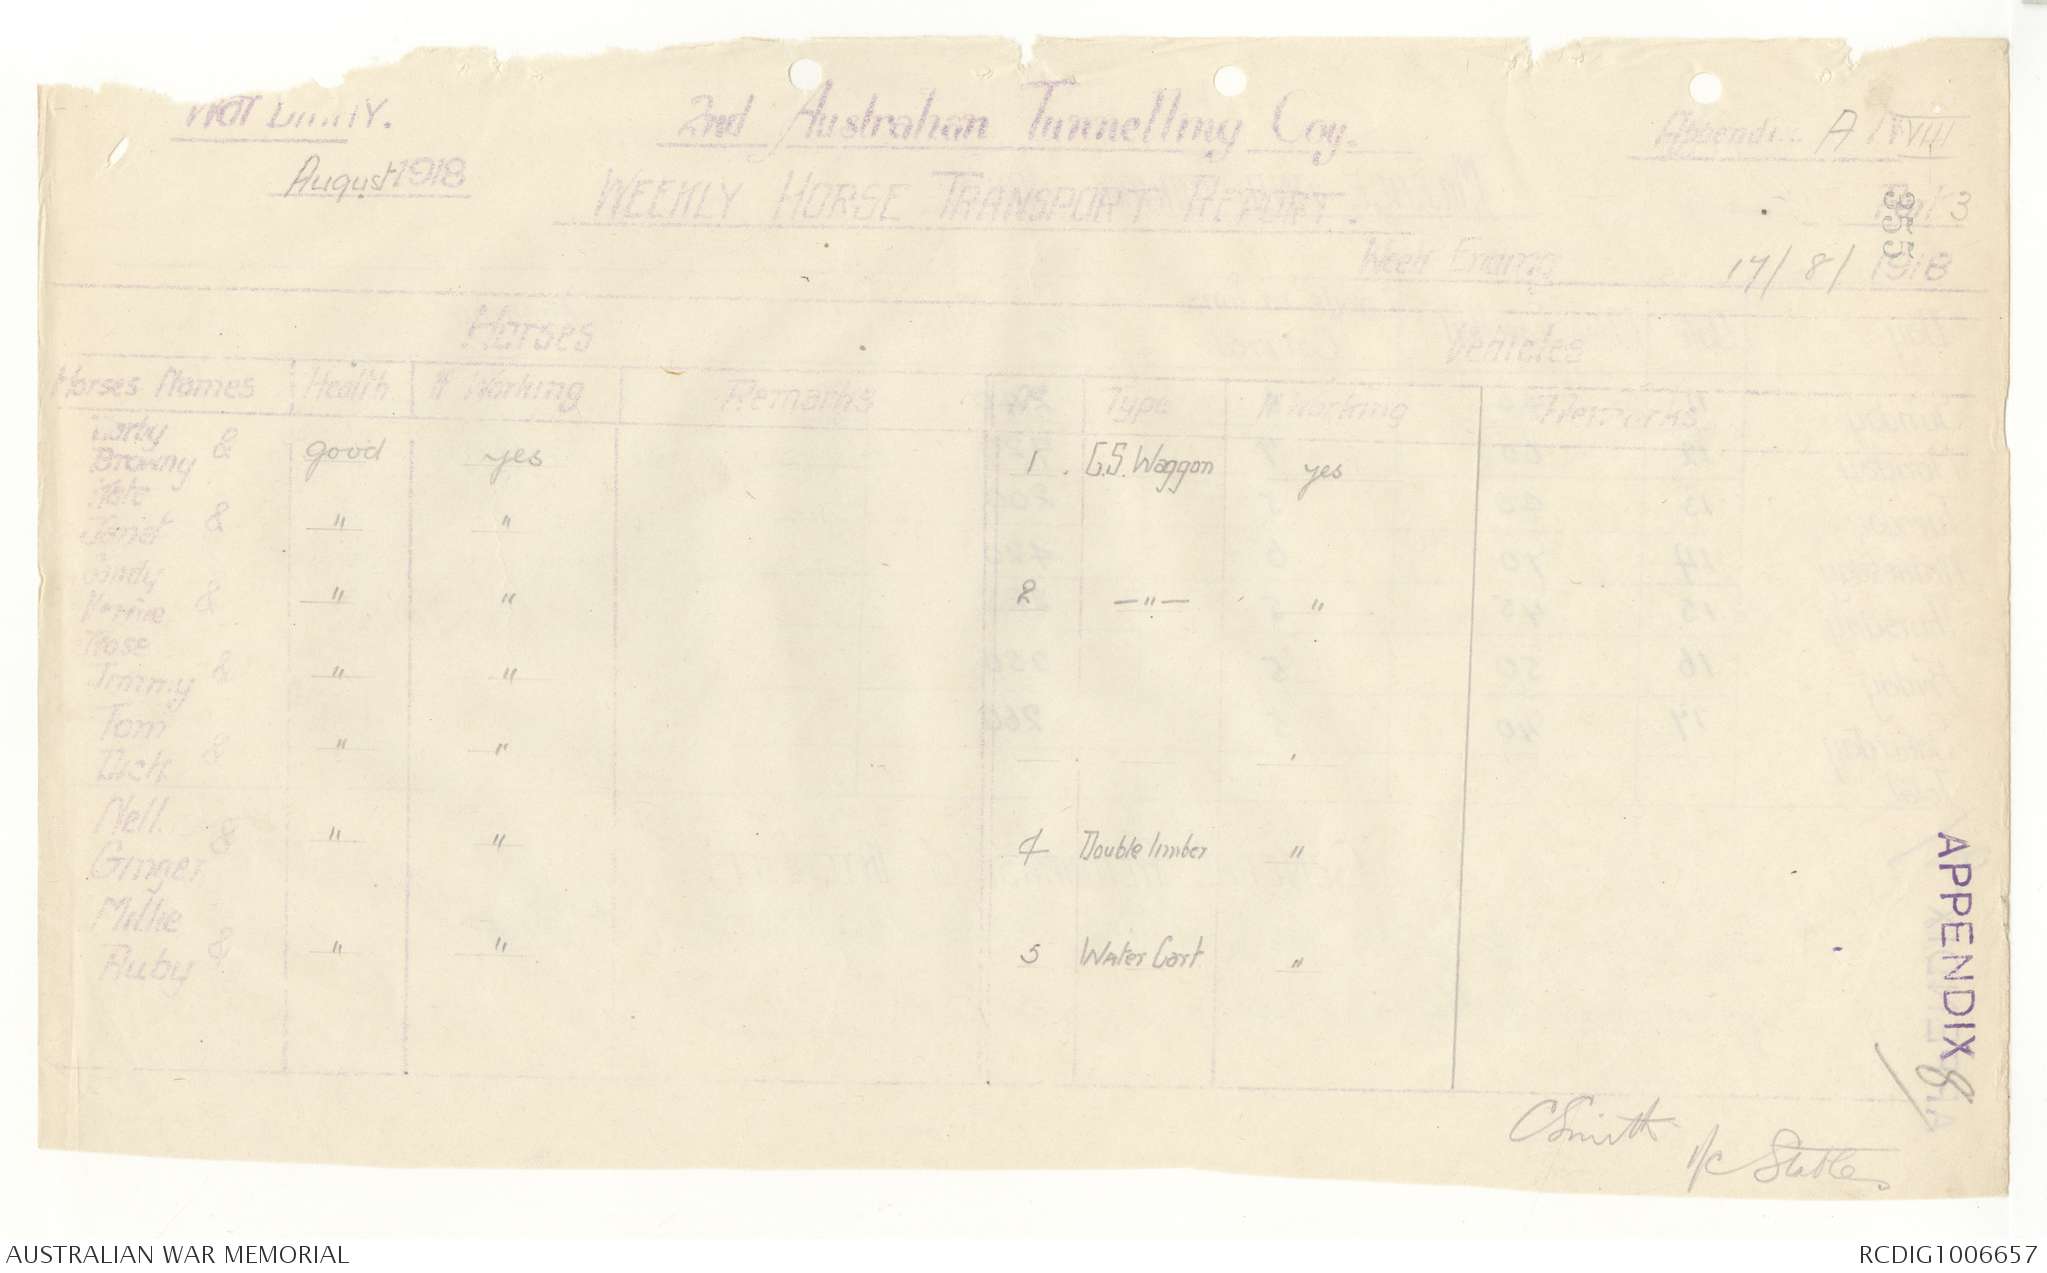 August 1918
2nd Australian Tunnelling Coy.
WEEKLY HORSE TRANSPORT REPORT.
Appendi A
3
355
Week Ending 17/8/1918
Horses Vehicles
Horses Names Health If Working Remarks No. Type If Working Remarks
Darby
& Browny good yes 1. G.S. Waggon yes
Kate
& Janet " "
& " " 2 —"— "
Rose
& Jimmy " "
Tom
& Dick " "
Nell
& Ginger " " 4 Double limber "
Millie
& Ruby " " 5 Water Cart "
APPENDIX 8/
CSmith
i/c Stables
AUSTRALIAN WAR MEMORIAL RCDIG1006657